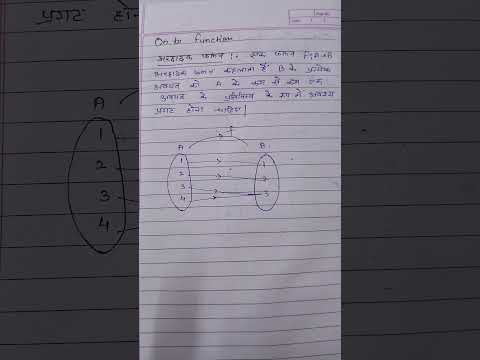 On to function
अच्छादक फलन :- एक फलन f:A→B
अच्छादक फलन कहलाता है B के प्रत्येक
अवयव को A के कम से कम एक
अवयव के प्रतिबिम्ब के रूप में अवश्य
प्रगट होना चाहिए।
f
A B
1 1
2 2
3 3
4
प्रगट हो
A
1
2
3
4